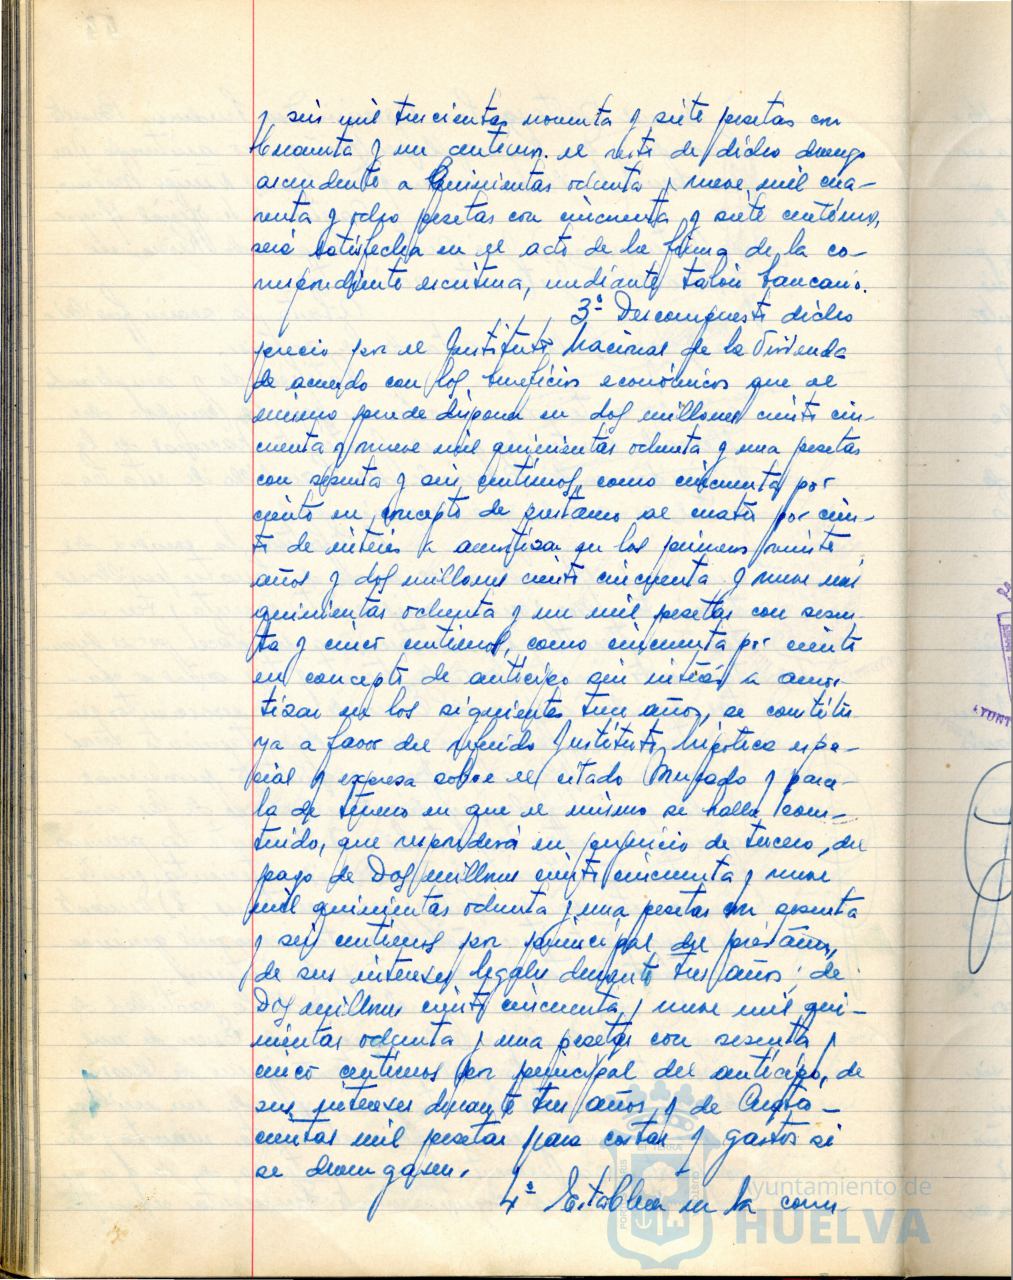 y seis mil trescientas noventa y siete pesetas con
noventa y un céntimos. el resto de dicho devengo
ascendente a Quinientas ochenta y nueve mil cua-
renta y ocho pesetas con cincuenta y siete céntimos,
será satisfecha en el acto de la firma de la co-
rrespondiente escritura, mediante talón bancario.
3º Descompuesto dicho
precio por el Instituto Nacional de la Vivienda
de acuerdo con los beneficios económicos que el
mismo puede disponer en dos millones ciento cin-
cuenta y nueve mil quinientas ochenta y una pesetas
con sesenta y seis céntimos, como cincuenta por
ciento en concepto de préstamo al cuatro por cien-
to de interés a amortizar en los primeros veinte
años y dos millones ciento cincuenta y nueve mil
quinientas ochenta y un mil pesetas con sesen-
ta y cinco céntimos, como cincuenta por ciento
en concepto de anticipo sin interés a amor-
tizar en los siguientes años, se constitu-
ya a favor del referido Instituto, hipoteca espe-
cial y expresa sobre el citado Mercado y parce-
la de terreno en que el mismo se halla cons-
truido, que responderá en perjuicio de tercero, del
pago de Dos millones ciento cincuenta y nueve
mil quinientas ochenta y una pesetas con sesenta
y seis céntimos por principal del préstamo,
de sus intereses legales durante tres años; de
Dos millones ciento cincuenta y nueve mil qui-
nientas ochenta y una pesetas con sesenta y
cinco céntimos por principal del anticipo, de
sus intereses durante tres años, y de Cuatro-
cientas mil pesetas para costas y gastos si
se devengasen.
4º Establecer en la
Ayuntamiento de
HUELVA